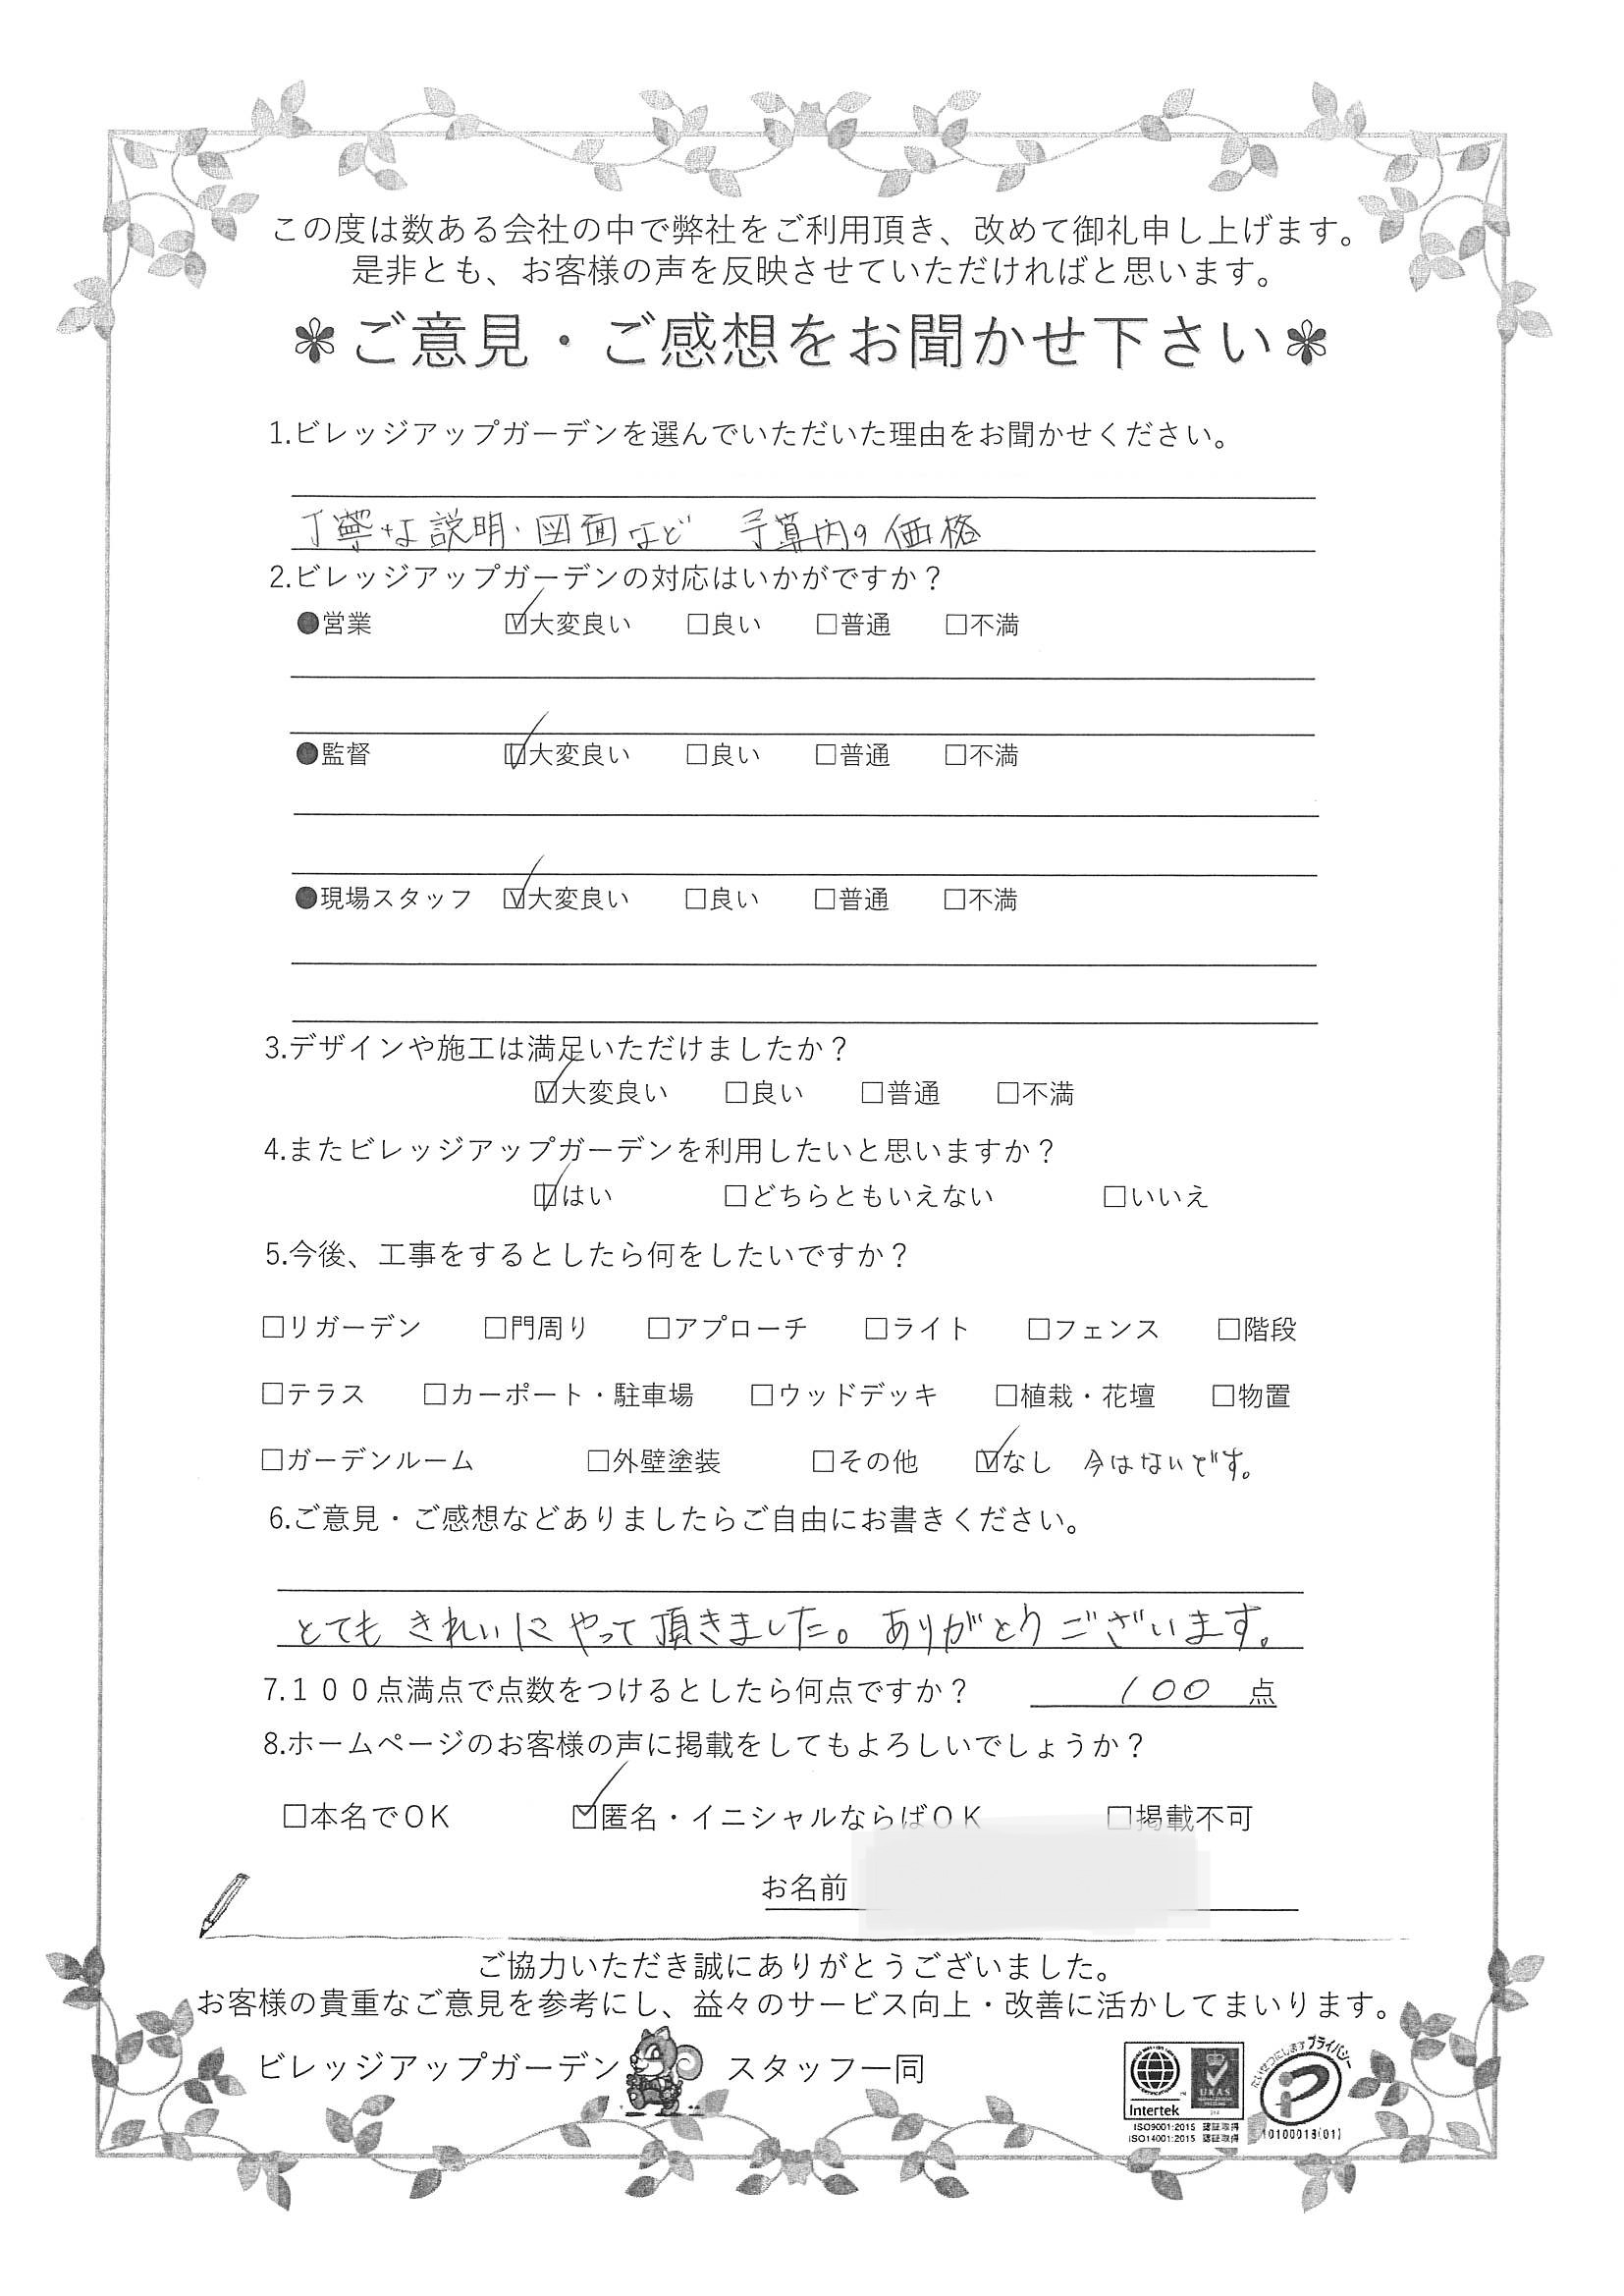 この度は数ある会社の中で弊社をご利用頂き、改めて御礼申し上げます。
是非とも、お客様の声を反映させていただければと思います。
ご意見・ご感想をお聞かせ下さい
1.ビレッジアップガーデンを選んでいただいた理由をお聞かせください。
丁寧な説明・図面など 予算内の価格
2.ビレッジアップガーデンの対応はいかがですか？
●営業 ☑大変良い □良い □普通 □不満
●監督 ☑大変良い □良い □普通 □不満
●現場スタッフ ☑大変良い □良い □普通 □不満
3.デザインや施工は満足いただけましたか？
☑大変良い □良い □普通 □不満
4.またビレッジアップガーデンを利用したいと思いますか？
☑はい □どちらともいえない □いいえ
5.今後、工事をするとしたら何をしたいですか？
□リガーデン □門周り □アプローチ □ライト □フェンス □階段
□テラス □カーポート・駐車場 □ウッドデッキ □植栽・花壇 □物置
□ガーデンルーム □外壁塗装 □その他 ☑なし 今はないです。
6.ご意見・ご感想などありましたらご自由にお書きください。
とてもきれいにやって頂きました。ありがとうございます。
7.１００点満点で点数をつけるとしたら何点ですか？ 100 点
8.ホームページのお客様の声に掲載をしてもよろしいでしょうか？
□本名でＯＫ ☑匿名・イニシャルならばＯＫ □掲載不可
お名前
ご協力いただき誠にありがとうございました。
お客様の貴重なご意見を参考にし、益々のサービス向上・改善に活かしてまいります。
ビレッジアップガーデン スタッフ一同
Intertek
UKAS
ISO9001:2015 認証取得
ISO14001:2015 認証取得
たいせつにしますプライバシー
10100018(01)